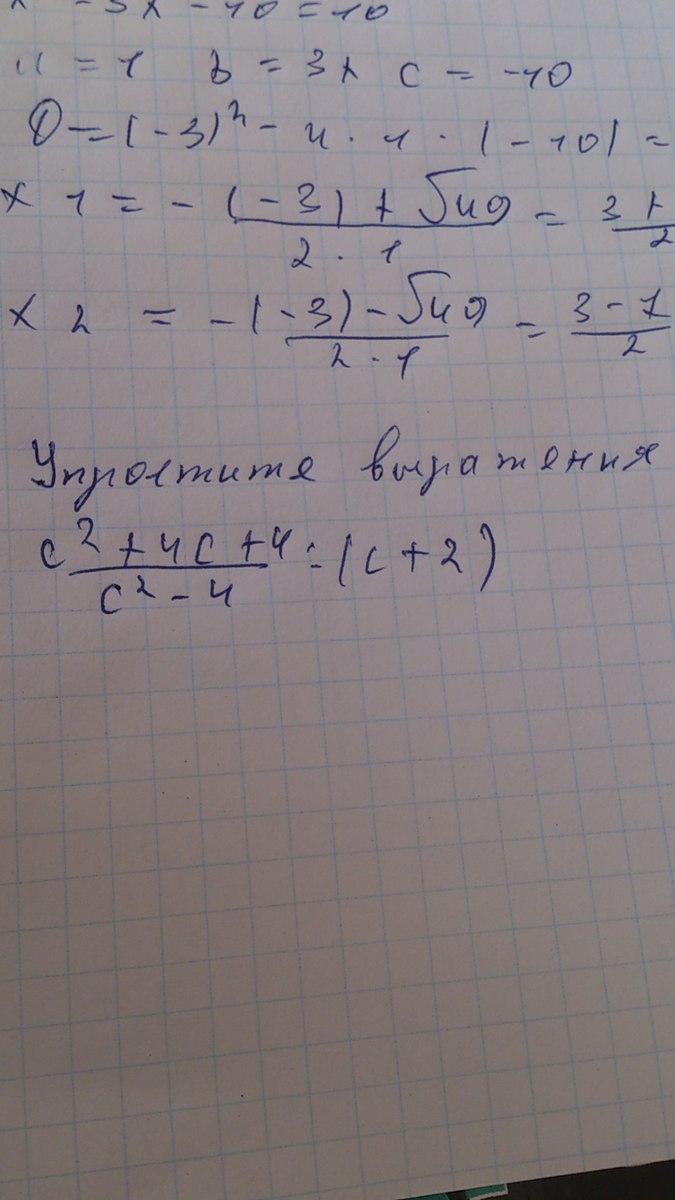 - 3x - 10 = 10
a = 1 b = 3x c = -10
D = (-3)² - 4 · 1 · (-10) =
x 1 = - (-3) + √49 / 2 · 1 = 3 + / 2
x 2 = -(-3) - √49 / 2 · 1 = 3 - 7 / 2
Упростите выражения
c² + 4c + 4 / c² - 4 : (c + 2)